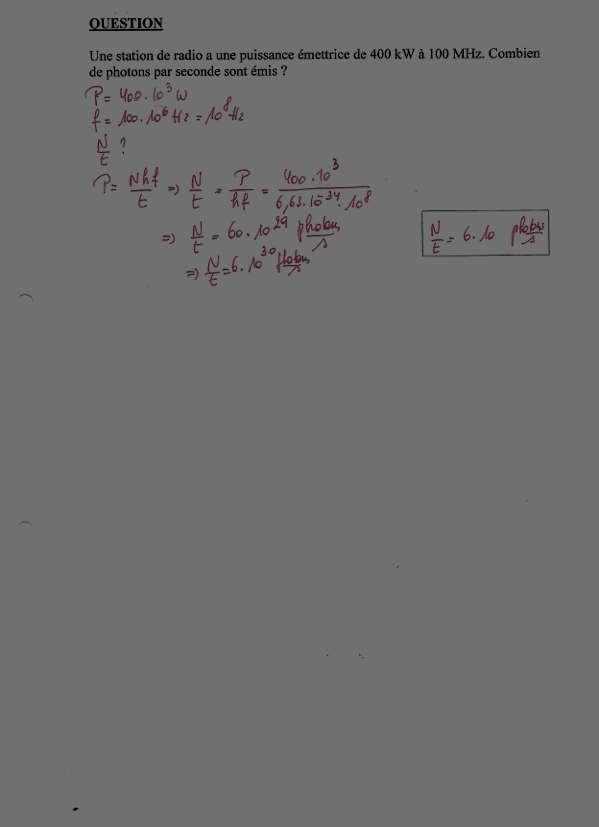 QUESTION
Une station de radio a une puissance émettrice de 400 kW à 100 MHz. Combien
de photons par seconde sont émis ?
P = 400 . 10³ W
f = 100 . 10⁶ Hz = 10⁸ Hz
N/t ?
P = Nhf/t => N/t = P/hf = 400 . 10³ / 6,63 . 10⁻³⁴ . 10⁸
=> N/t = 60 . 10²⁹ photons/s
=> N/t = 6 . 10³⁰ photons/s
N/t = 6 . 10 photons/s